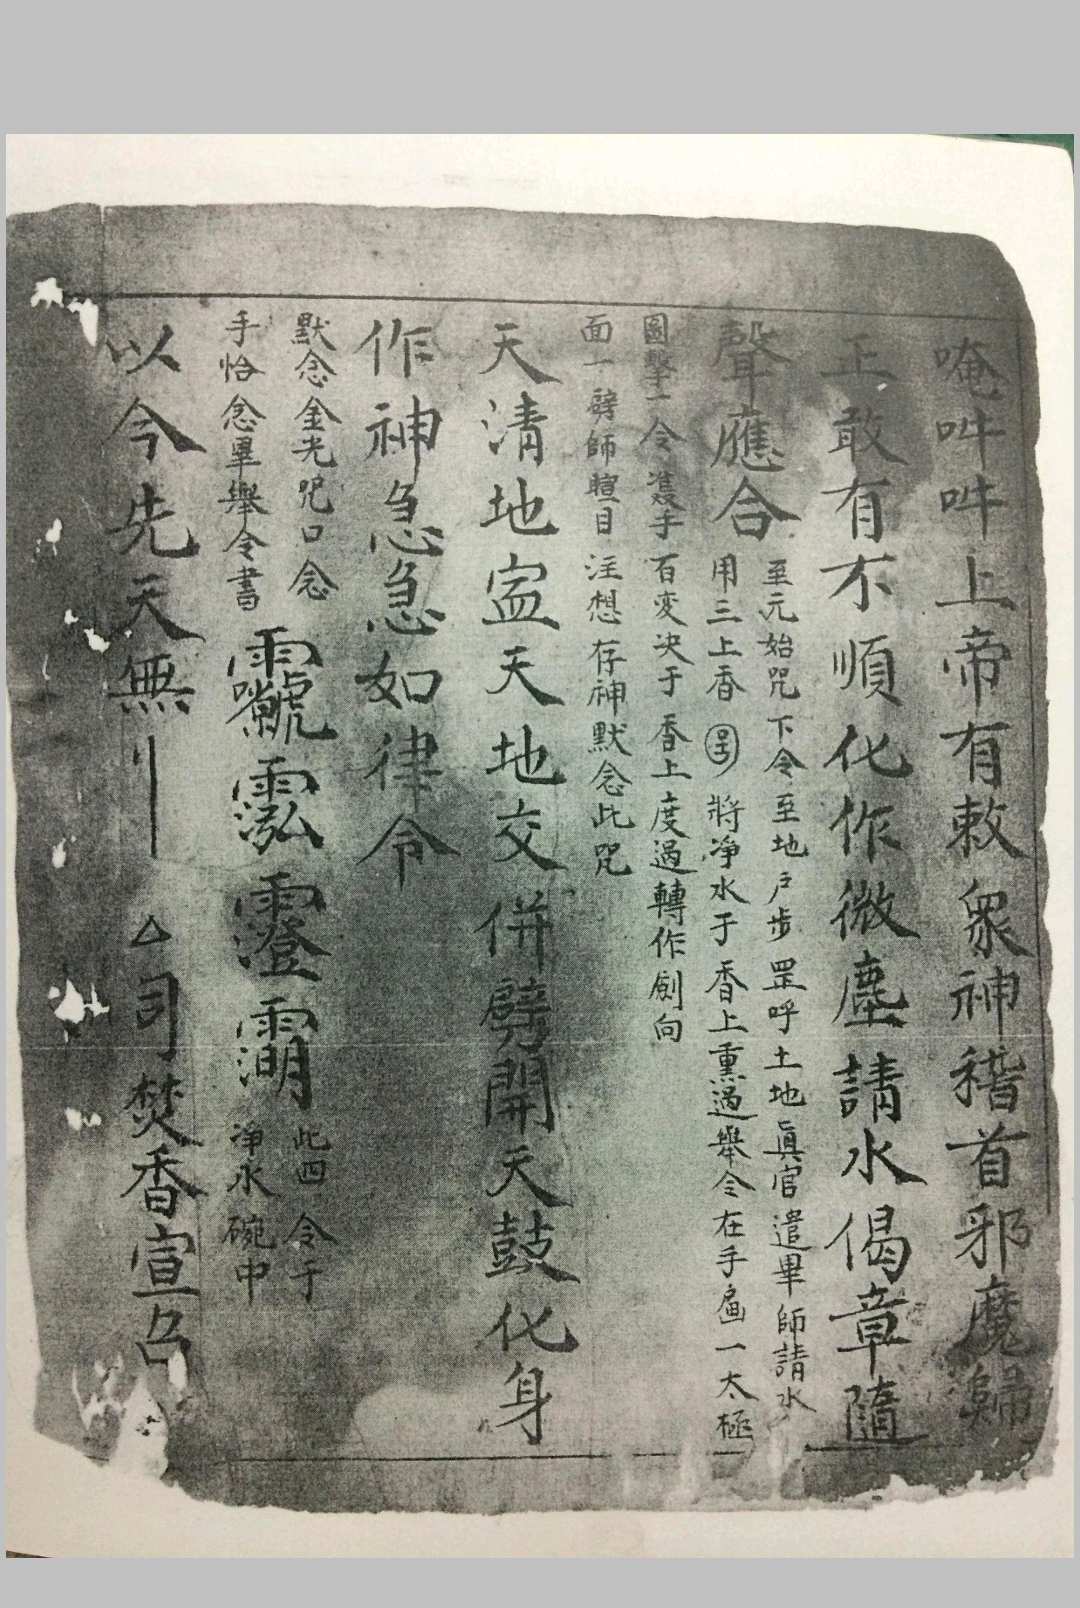 唵吽吽上帝有敕衆神稽首邪魔歸
正敢有不順化作微塵請水偈章隨
聲應合
至元始咒下令至地户步罡呼土地眞官遣畢師請水
用三上香 將净水于香上熏過舉令在手畫一太極
圖擊一令 手百变决于香上度過轉作劍向
面一劈師 目注想存神默念此咒
天清地 天地交併劈開天鼓化身
作神急急如律令
默念金光咒口念
手恰念畢舉令書
此四令于
净水碗中
以今先天無 △司焚香宣召